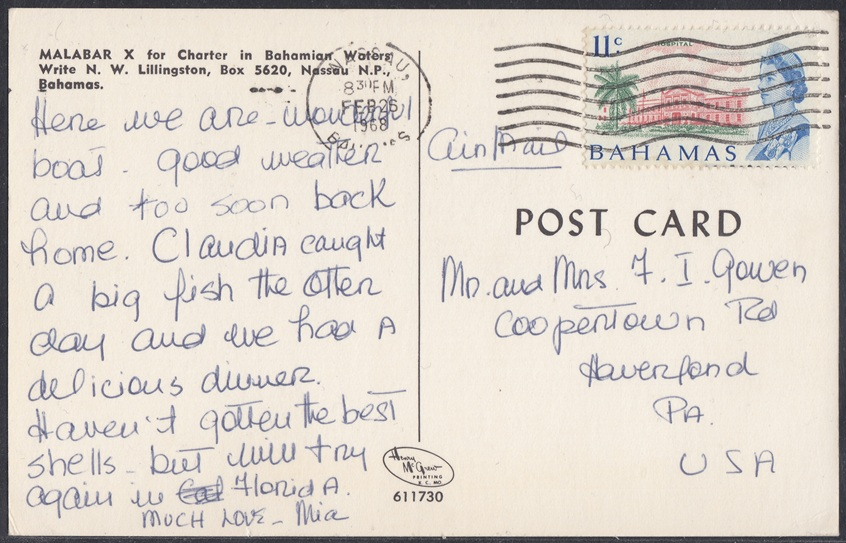 MALABAR X for Charter in Bahamian Waters
Write N. W. Lillingston, Box 5620, Nassau N.P.,
Bahamas.
Here we are - wonderful
boat. good weather
and too soon back
home. Claudia caught
a big fish the other
day and we had A
delicious dinner.
Haven't gotten the best
shells - but will try
again in Florida.
MUCH LOVE - Mia
NASSAU,
8 30 PM
FEB 26
1968
BAHAMAS
11c
HOSPITAL
BAHAMAS
Air Mail
POST CARD
Mr. and Mrs. F. I. Gowen
Coopertown Rd
Haverford
PA.
USA
Henry
McGrew
PRINTING
K. C. MO.
611730